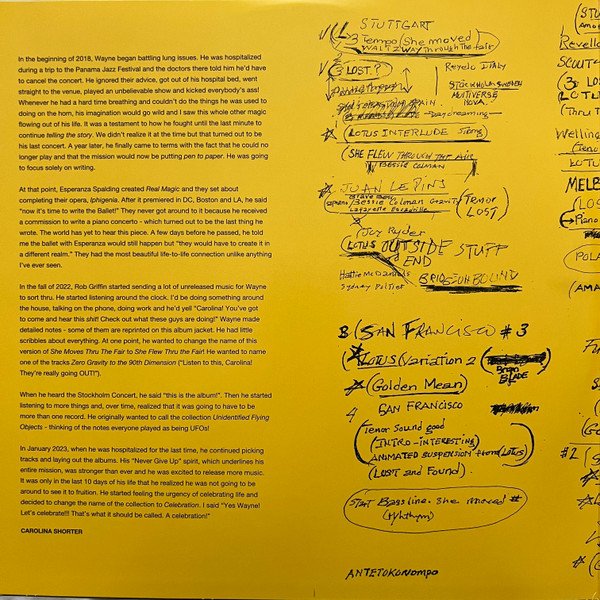 In the beginning of 2018, Wayne began battling lung issues. He was hospitalized
during a trip to the Panama Jazz Festival and the doctors there told him he'd have
to cancel the concert. He ignored their advice, got out of his hospital bed, went
straight to the venue, played an unbelievable show and kicked everybody's ass!
Whenever he had a hard time breathing and couldn't do the things he was used to
doing on the horn, his imagination would go wild and I saw this whole other magic
flowing out of his life. It was a testament to how he fought until the last minute to
continue telling the story. We didn't realize it at the time but that turned out to be
his last concert. A year later, he finally came to terms with the fact that he could no
longer play and that the mission would now be putting pen to paper. He was going
to focus solely on writing.
At that point, Esperanza Spalding created Real Magic and they set about
completing their opera, Iphigenia. After it premiered in DC, Boston and LA, he said
"now it's time to write the Ballet!" They never got around to it because he received
a commission to write a piano concerto - which turned out to be the last thing he
wrote. The world has yet to hear this piece. A few days before he passed, he told
me the ballet with Esperanza would still happen but "they would have to create it in
a different realm." They had the most beautiful life-to-life connection unlike anything
I've ever seen.
In the fall of 2022, Rob Griffin started sending a lot of unreleased music for Wayne
to sort thru. He started listening around the clock. I'd be doing something around
the house, talking on the phone, doing work and he'd yell "Carolina! You've got
to come and hear this shit! Check out what these guys are doing!" Wayne made
detailed notes - some of them are reprinted on this album jacket. He had little
scribbles about everything. At one point, he wanted to change the name of this
version of She Moves Thru The Fair to She Flew Thru the Fair! He wanted to name
one of the tracks Zero Gravity to the 90th Dimension ("Listen to this, Carolina!
They're really going OUT!").
When he heard the Stockholm Concert, he said "this is the album!". Then he started
listening to more things and, over time, realized that it was going to have to be
more than one record. He originally wanted to call the collection Unidentified Flying
Objects - thinking of the notes everyone played as being UFOs!
In January 2023, when he was hospitalized for the last time, he continued picking
tracks and laying out the albums. His "Never Give Up" spirit, which underlines his
entire mission, was stronger than ever and he was excited to release more music.
It was only in the last 10 days of his life that he realized he was not going to be
around to see it to fruition. He started feeling the urgency of celebrating life and
decided to change the name of the collection to Celebration. I said "Yes Wayne!
Let's celebrate!!! That's what it should be called. A celebration!"
CAROLINA SHORTER
STUTTGART
Tempo (She moved)
WALTZ WAY through the fair
3 LOST?
Revelo Italy
STOCKHOLM SWEDEN
MULTIVERSE
NOVA
Daydreaming
LOTUS INTERLUDE
(SHE FLEW THROUGH THE AIR
BESSIE COLMAN
JUAN LE PINS
Bessie Colman Gravity
Lafayette
(Tenor
LOST)
Joy Ryder
LOTUS OUTSIDE STUFF
END
Hattie McDaniels
Sydney Poitier
BRIDGEON BOUND
B (SAN FRANCISCO #3
LOTUS (Variation 2
Brian
BLADE
(Golden Mean)
4 SAN FRANCISCO
Tenor Sound good
(INTRO-INTERESTING)
ANIMATED SUSPENSION (LOTUS)
(LOST and Found)
START Bassline. She moved #
(Rhythym)
ANTETOKONOMPO
Revello
LOTUS
(Thru
Welling
LOTUS
MELB
(LOS
Piano
POLA
(AMA
#2